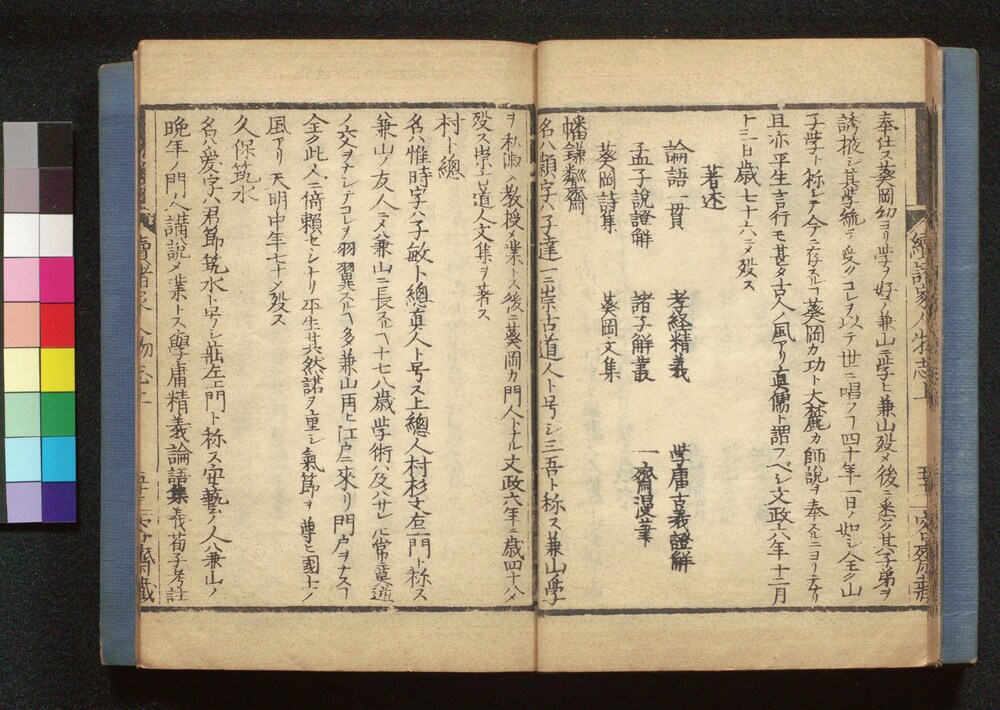 奉仕ス葵岡幼ヨリ學ヲ好ノ兼山ニ學ヒ兼山歿メ後ニ悉ク其子弟ヲ
誘掖シ其學統ヲ受クコレヲ以テ世ニ唱フフ四十年一日ノ如シ全ク山
子學ト称レテ今ニ存スルハ葵岡カ功ト大麓カ師說ヲ奉スルニヨリテナリ
且亦平生言行モ甚タ古人ノ風アリ真儒ト謂フベシ文政六年十二月
十三日歲七十六ニメ歿ス
著述
論語一貫 孝経精義 學庸古義證解
孟子說證解 諸子解叢 一齋漫筆
葵岡詩集 葵岡文集
幡鎌粼齋
名ハ顯字ハ子達一ニ崇古道人ト号シ三吾ト称ス兼山學
ヲ私淑メ教授メ業トス後ニ葵岡カ門人トナル文政六年ニ歲四十八メ
歿ス崇古道人文集ヲ著ス
村ト總
名ハ惟時字ハ子敏ト總真人ト号ス上總人村杉丈右エ門ト称ス
兼山ノ友人ニメ八兼山ニ長スルヿ十七八歲學術ハ及ハサレ𪜈常ニ莫逆
ノ交ヲナシテコレヲ羽翼スルヿ多兼山再ヒ江戸ニ來リ門戸ヲナスヿ
全ク此人ニ倚賴セシナリ平生廿六然諾ヲ重シ氣節ヲ尊ヒ國士ノ
風アリ天明中年七十メ歿ス
久保筑水
名ハ爱字ハ君節筑水ト号シ莊左エ門ト称ス安藝ノ人ハ兼山ノ
晚年ノ門人誦說メ業トス學庸精義論語集義荀子考註